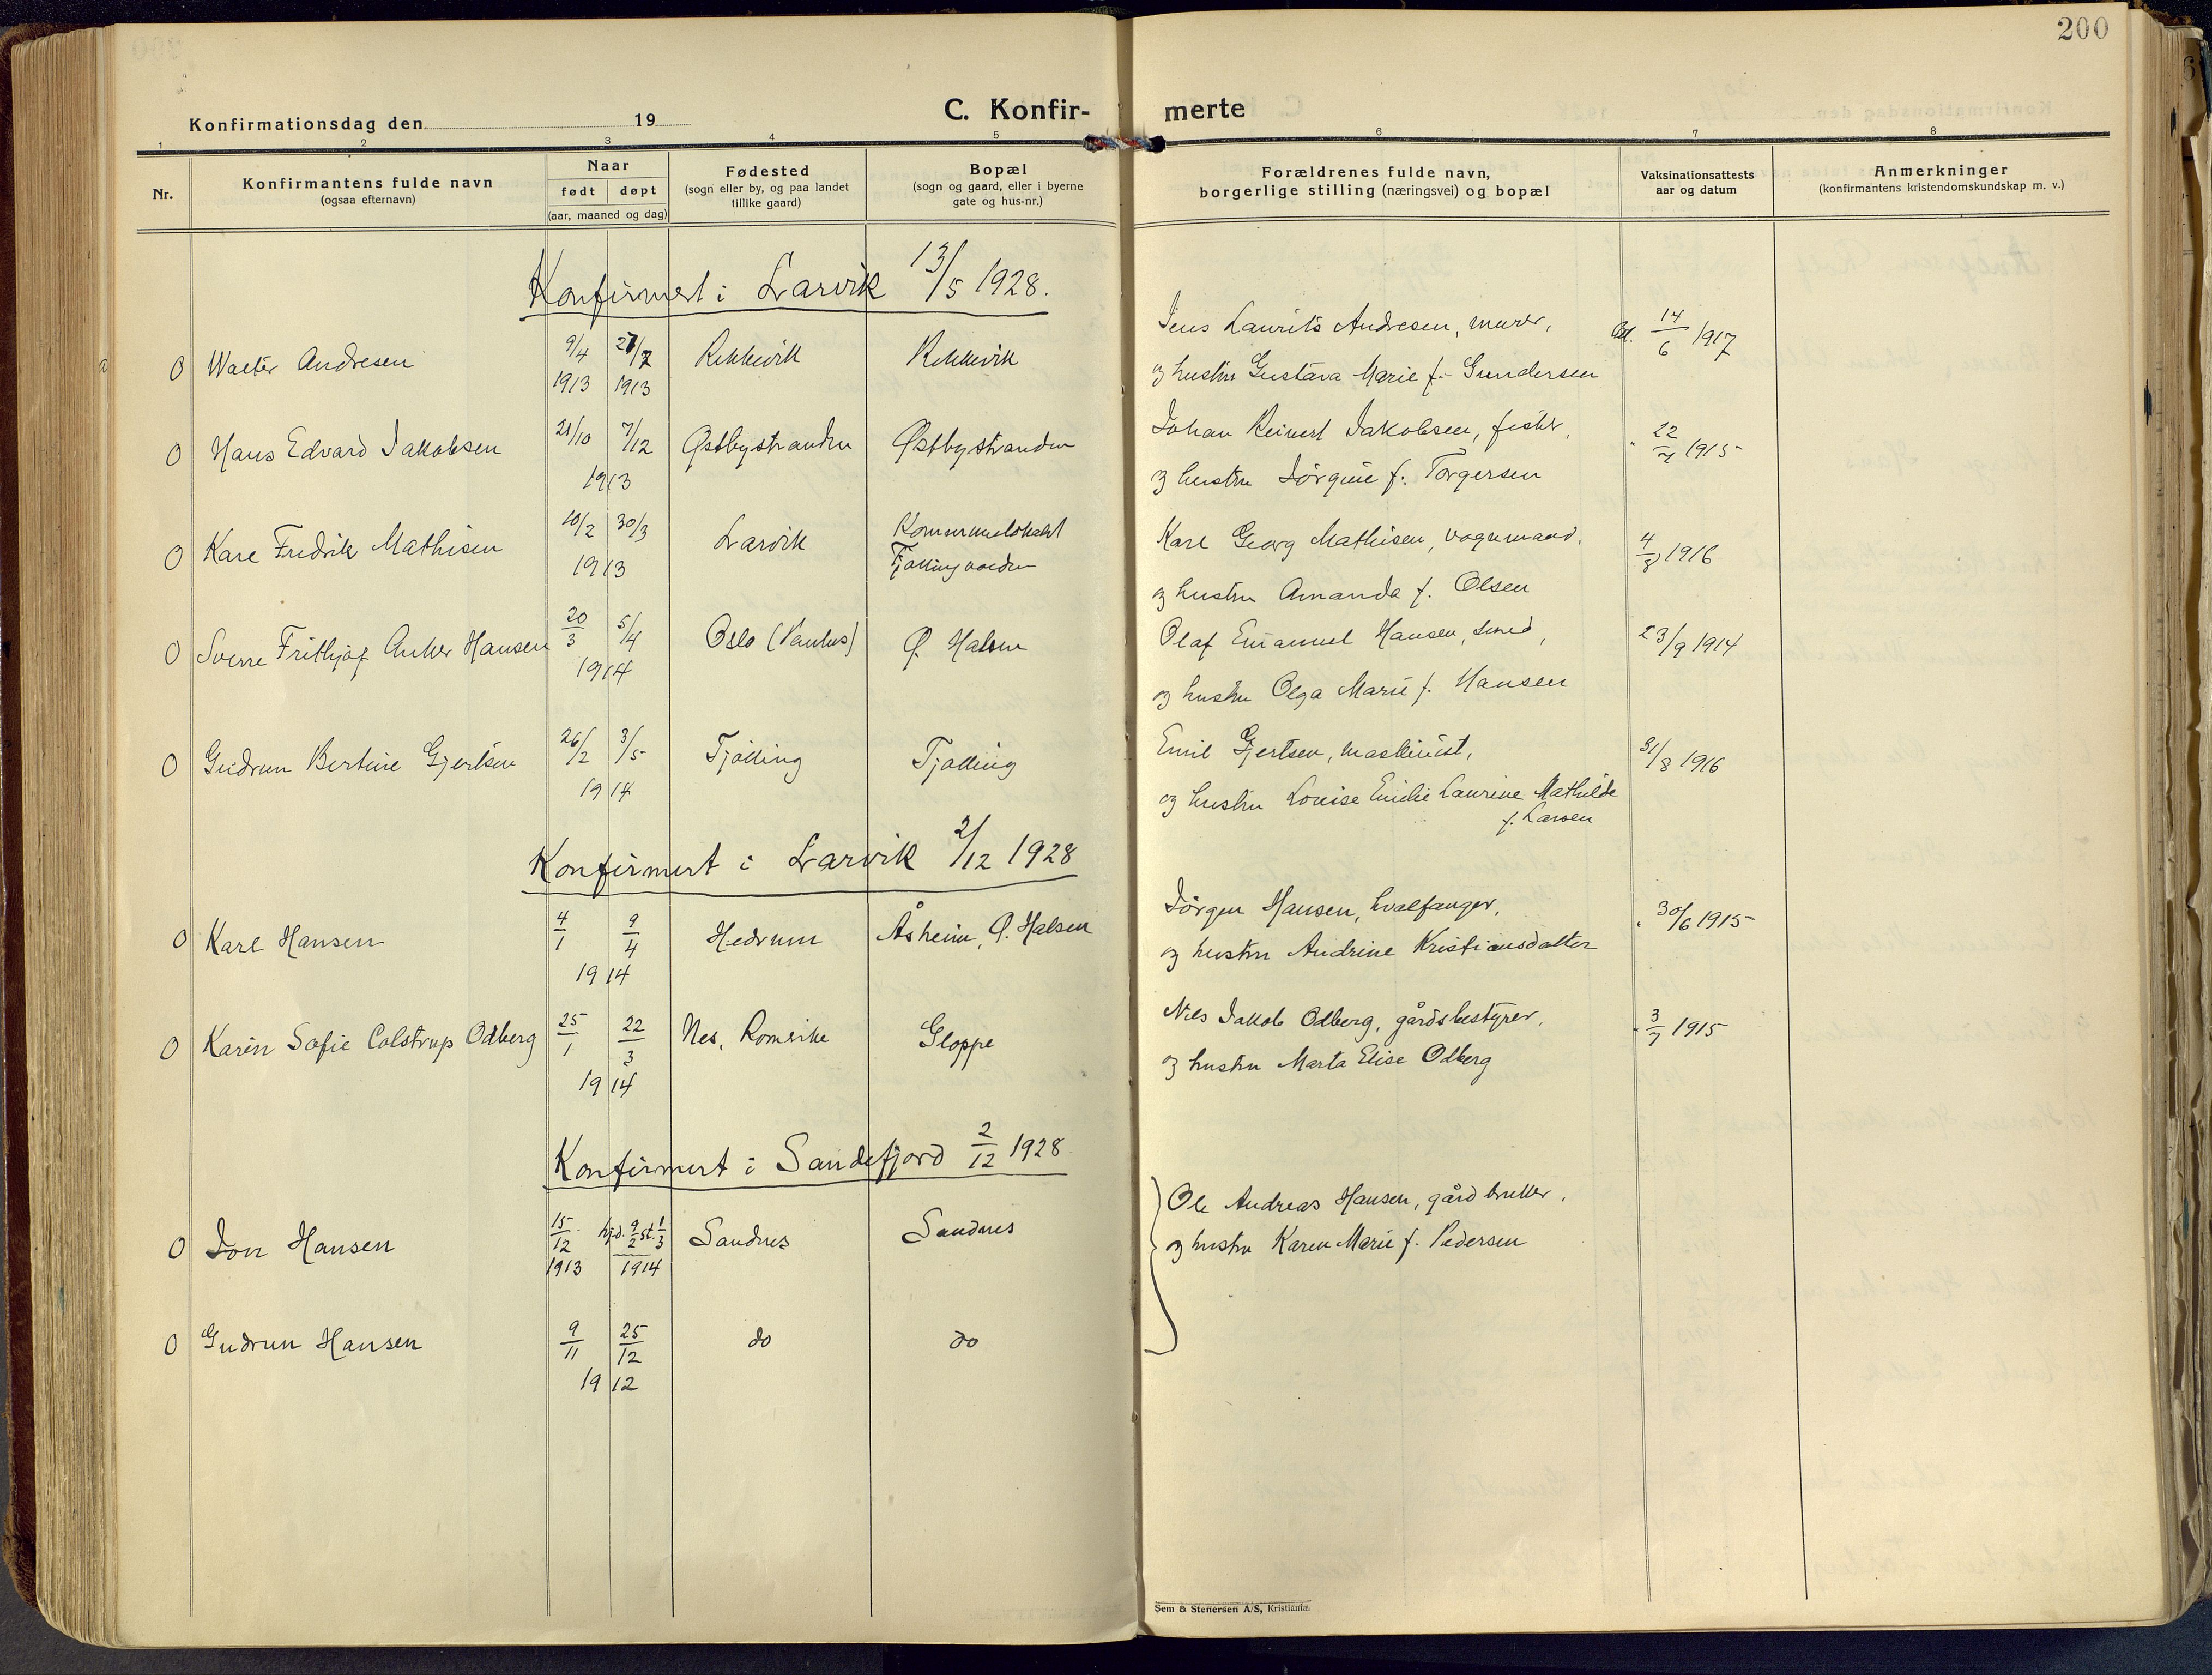 200
Konfirmationsdag den 19
C. Konfir-
merte
1 2 3 4 5 6 7 8
Nr.
Konfirmantens fulde navn
(ogsaa efternavn)
Naar
født døpt
(aar, maaned og dag)
Fødested
(sogn eller by, og paa landet
tillike gaard)
Bopæl
(sogn og gaard, eller i byerne
gate og hus-nr.)
Forældrenes fulde navn,
borgerlige stilling (næringsvei) og bopæl
Vaksinationsattests
aar og datum
Anmerkninger
(konfirmantens kristendomskundskap m. v.)
Konfirmert i Larvik 13/5 1928.
0 Walter Andresen 9/4 1913 27/7 1913 Rekkevik Rekkevik
Jens Laurits Andresen, murer, 14/6 1917
og hustru Gustava Marie f. Gundersen
0 Hans Edvard Jakobsen 21/10 7/12 Østbystranden Østbystranden
1913
Johan Reinert Jakobsen, fisker, 22/7 1915
og hustru Jørgine f. Torgersen
0 Karl Fredrik Mathisen 10/2 30/3 Larvik
1913
Tjøllingvolden
Karl Georg Mathisen, vognmand, 4/8 1916
og hustru Amanda f. Olsen
0 Sverre Frithjof Anker Hansen 20/3 5/4 Oslo (Paulus) Ø. Halsen
1914
Olaf Emanuel Hansen, smed, 23/9 1914
og hustru Olga Marie f. Hansen
0 Gudrun Bertine Gjertsen 26/2 3/5 Tjølling Tjølling
1914
Emil Gjertsen, maskinist, 31/8 1916
og hustru Lovise Emilie Laurine Mathilde
f. Larsen
Konfirmert i Larvik 2/12 1928
0 Karl Hansen 4/1 9/4 Hedrum Åsheim, Ø. Halsen
1914
Jørgen Hansen, hvalfanger, 30/6 1915
og hustru Andrine Kristiansdatter
0 Karin Sofie Colstrup Odberg 25/1 22/3 Nes, Romerike Gloppe
1914
Nils Jakob Odberg, gårdsbestyrer, 3/7 1915
og hustru Marta Elise Odberg
Konfirmert i Sandefjord 2/12 1928
0 Jon Hansen 15/12 1913 hjd. 9/2 st. 1/3 1914 Sandnes Sandnes
Ole Andreas Hansen, gårdbruker,
og hustru Karen Marie f. Pedersen
0 Gudrun Hansen 9/11 25/12 do do
1912
Sem & Stenersen A/S, Kristiania.